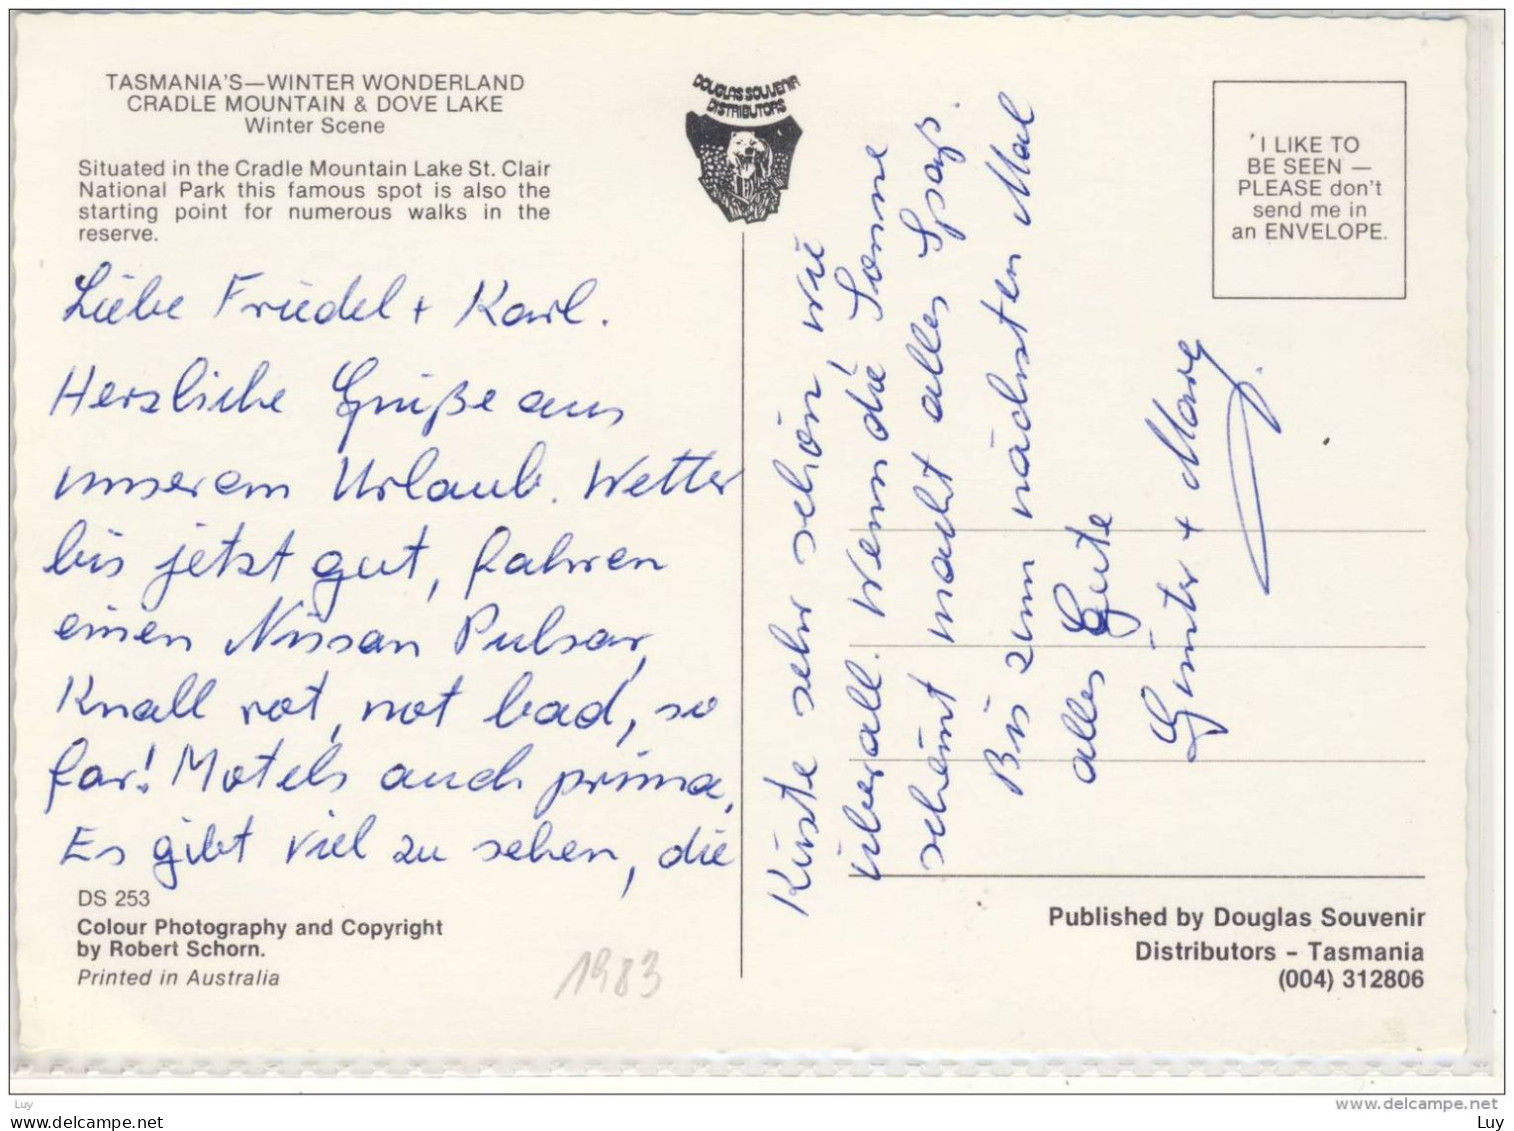 TASMANIA'S—WINTER WONDERLAND
CRADLE MOUNTAIN & DOVE LAKE
Winter Scene
Situated in the Cradle Mountain Lake St. Clair
National Park this famous spot is also the
starting point for numerous walks in the
reserve.
Liebe Friedel + Karl.
Herzliche Grüße aus
unserem Urlaub. Wetter
bis jetzt gut, fahren
einen Nissan Pulsar,
Knall rot, not bad, so
far! Motels auch prima.
Es gibt viel zu sehen, die
DS 253
Colour Photography and Copyright
by Robert Schorn.
Printed in Australia
1983
DOUGLAS SOUVENIR
DISTRIBUTORS
Küste sehr schön wie
überall. Wenn die Sonne
scheint macht alles Spaß.
Bis zum nächsten Mal
alles Gute
Günter + Marg.
'I LIKE TO
BE SEEN —
PLEASE don't
send me in
an ENVELOPE.
Published by Douglas Souvenir
Distributors - Tasmania
(004) 312806
www.delcampe.net
Luy
www.delcampe.net
Luy